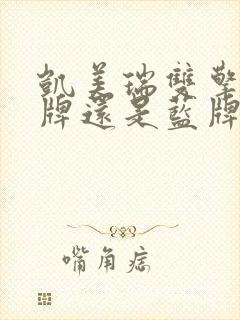 凱美瑞雙擎
牌還是藍牌
嘴角痣